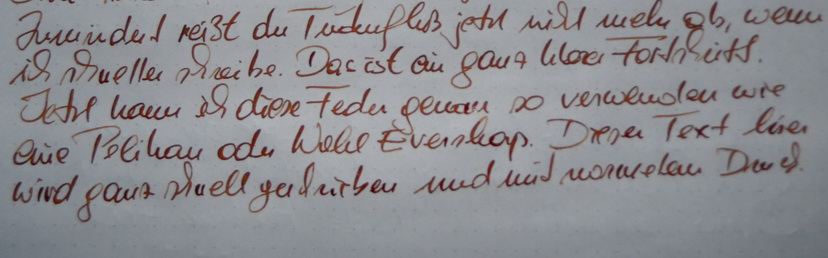 Zumindest reißt der Tintenfluß jetzt nicht mehr ab, wenn
ich schneller schreibe. Das ist ein ganz klarer Fortschritt.
Jetzt kann ich diese Feder genau so verwenden wie
eine Pelikan oder Wahl Eversharp. Dieser Text hier
wird ganz schnell geschrieben und mit normalem Druck.